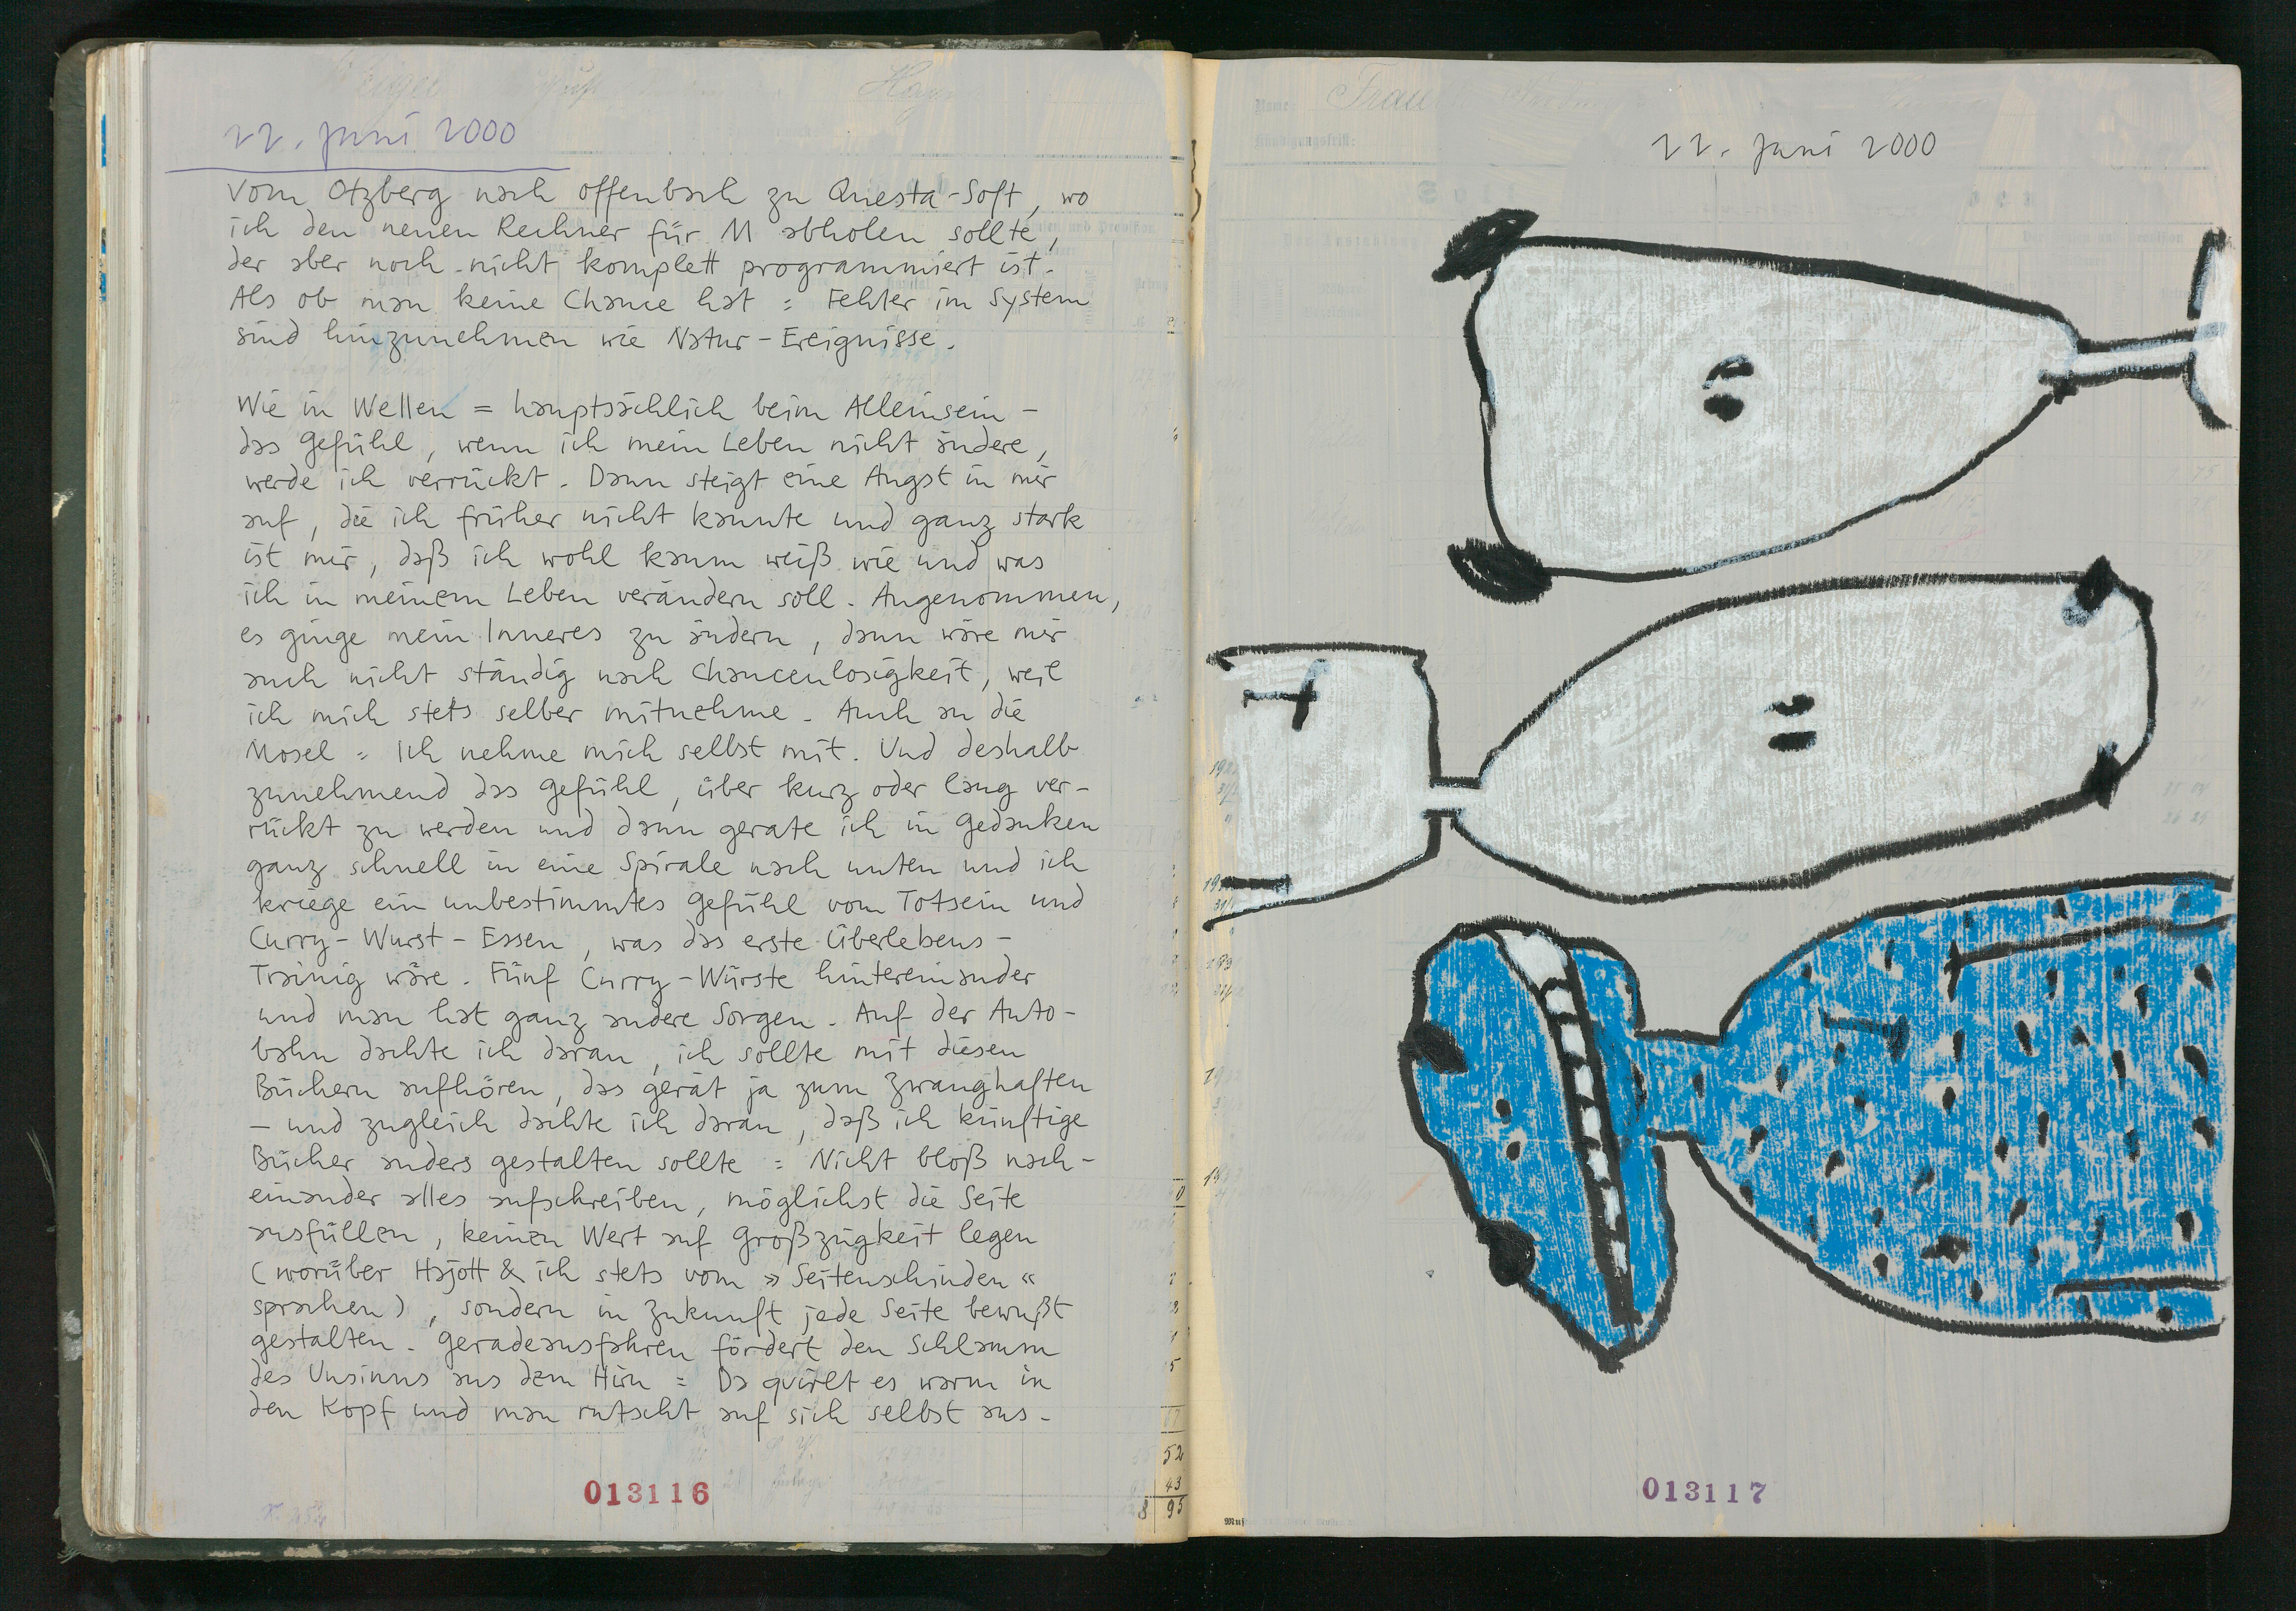 22. Juni 2000
Vom Otzberg nach Offenbach zu Questa-Soft, wo
ich den neuen Rechner für M abholen sollte,
der aber noch nicht komplett programmiert ist.
Als ob man keine Chance hat = Fehler im System
sind hinzunehmen wie Natur-Ereignisse.
Wie in Wellen = hauptsächlich beim Alleinsein –
das Gefühl, wenn ich mein Leben nicht ändere,
werde ich verrückt. Dann steigt eine Angst in mir
auf, die ich früher nicht kannte und ganz stark
ist mir, daß ich wohl kaum weiß wie und was
ich in meinem Leben verändern soll. Angenommen,
es ginge mein Inneres zu ändern, dann wäre mir
auch nicht ständig nach Chancenlosigkeit, weil
ich mich stets selber mitnehme. Auch an die
Mosel = Ich nehme mich selbst mit. Und deshalb
zunehmend das Gefühl, über kurz oder lang ver-
rückt zu werden und dann gerate ich in Gedanken
ganz schnell in eine Spirale nach unten und ich
kriege ein unbestimmtes Gefühl vom Totsein und
Curry-Wurst-Essen, was das erste Überlebens-
Trainig wäre. Fünf Curry-Würste hintereinander
und man hat ganz andere Sorgen. Auf der Auto-
bahn dachte ich daran, ich sollte mit diesen
Büchern aufhören, das gerät ja zum Zwanghaften
– und zugleich dachte ich daran, daß ich künftige
Bücher anders gestalten sollte = Nicht bloß nach-
einander alles aufschreiben, möglichst die Seite
ausfüllen, keinen Wert auf Großzügkeit legen
(worüber Hajott & ich stets vom »Seitenschinden«
sprachen), sondern in Zukunft jede Seite bewußt
gestalten. Geradeausfahren fördert den Schlamm
des Unsinns aus dem Hirn = Da quirlt es warm in
den Kopf und man rutscht auf sich selbst aus.
013116
52
43
8 95
Frau
22. Juni 2000
013117